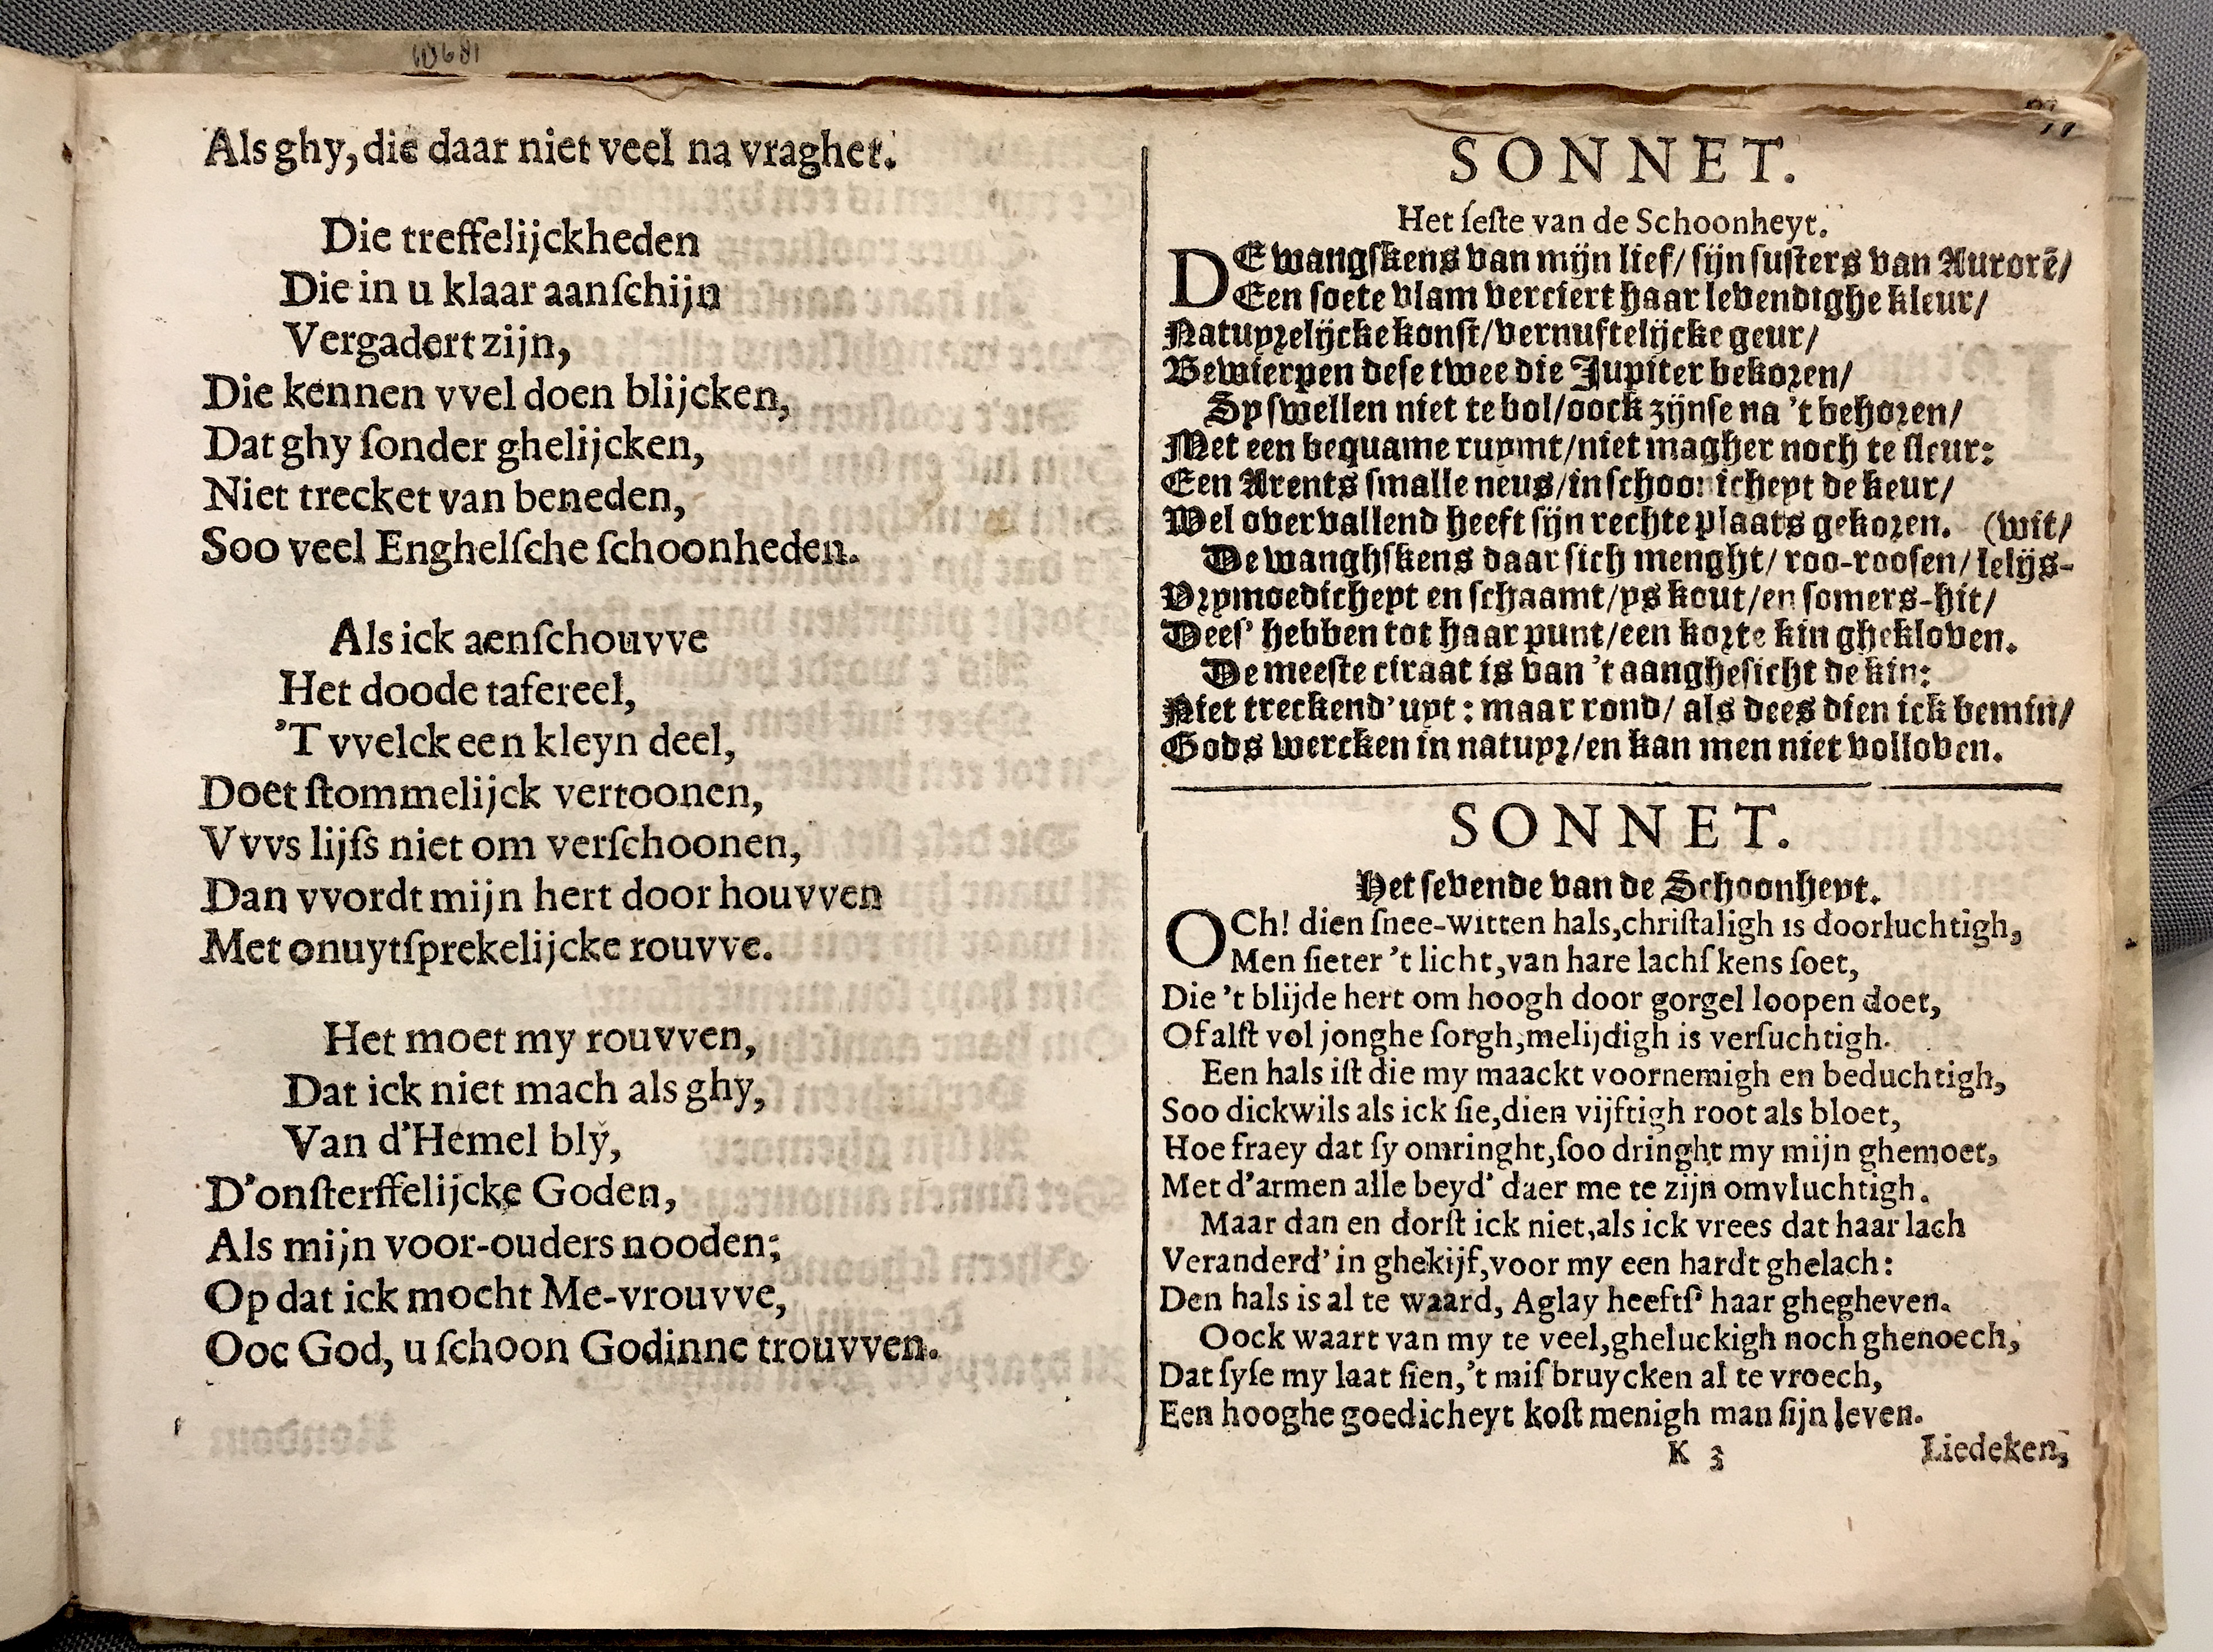 Als ghy, die daar niet veel na vraghet.
Die treffelijckheden
Die in u klaar aanſchijn
Vergadert zijn,
Die kennen vvel doen blijcken,
Dat ghy ſonder ghelijcken,
Niet trecket van beneden,
Soo veel Enghelſche ſchoonheden.
Als ick aenſchouvve
Het doode tafereel,
'T vvelck een kleyn deel,
Doet ſtommelijck vertoonen,
Vvvs lijfs niet om verſchoonen,
Dan vvordt mijn hert door houvven
Met onuytſprekelijcke rouvve.
Het moet my rouvven,
Dat ick niet mach als ghy,
Van d'Hemel blÿ,
D'onſterffelijcke Goden,
Als mijn voor-ouders nooden;
Op dat ick mocht Me-vrouvve,
Ooc God, u ſchoon Godinne trouvven.
SONNET.
Het ſeſte van de Schoonheyt.
DE wangſkens van mijn lief/ ſijn ſuſters van Aurorē/
Een ſoete vlam verciert haar levendighe kleur/
Natuyrelijcke konſt/ vernuftelijcke geur/
Bewierpen deſe twee die Jupiter bekoren/
Sy ſwellen niet te bol/ oock zijnſe na 't behoren/
Met een bequame ruymt/ niet magher noch te fleur:
Een Arents ſmalle neus/ in ſchoonicheyt de keur/
Wel overvallend heeft ſijn rechte plaats gekoren. (wit/
De wanghſkens daar ſich menght/ roo-rooſen/ lelijs-
Vrymoedicheyt en ſchaamt/ ys kout/ en ſomers-hit/
Dees' hebben tot haar punt/ een korte kin ghekloven.
De meeste ciraat is van 't aangheſicht de kin:
Niet treckend' uyt: maar rond/ als dees dien ick bemin/
Gods wercken in natuyr/ en kan men niet volloven.
SONNET.
Het ſevende van de Schoonheyt.
OCh! dien ſnee-witten hals, chriſtaligh is doorluchtigh,
Men ſieter 't licht, van hare lachſkens ſoet,
Die 't blijde hert om hoogh door gorgel loopen doet,
Of alſt vol jonghe ſorgh, melijdigh is verſuchtigh.
Een hals iſt die my maackt voornemigh en beduchtigh,
Soo dickwils als ick ſie, dien vijftigh root als bloet,
Hoe fraey dat ſy omringht, ſoo dringht my mijn ghemoet,
Met d'armen alle beyd' daer me te zijn omvluchtigh.
Maar dan en dorſt ick niet, als ick vrees dat haar lach
Veranderd' in ghekijf, voor my een hardt ghelach:
Den hals is al te waard, Aglay heeftſ' haar ghegheven.
Oock waart van my te veel, gheluckigh noch ghenoech,
Dat ſyſe my laat ſien, 't miſbruycken al te vroech,
Een hooghe goedicheyt koſt menigh man ſijn leven.
K 3 Liedeken,